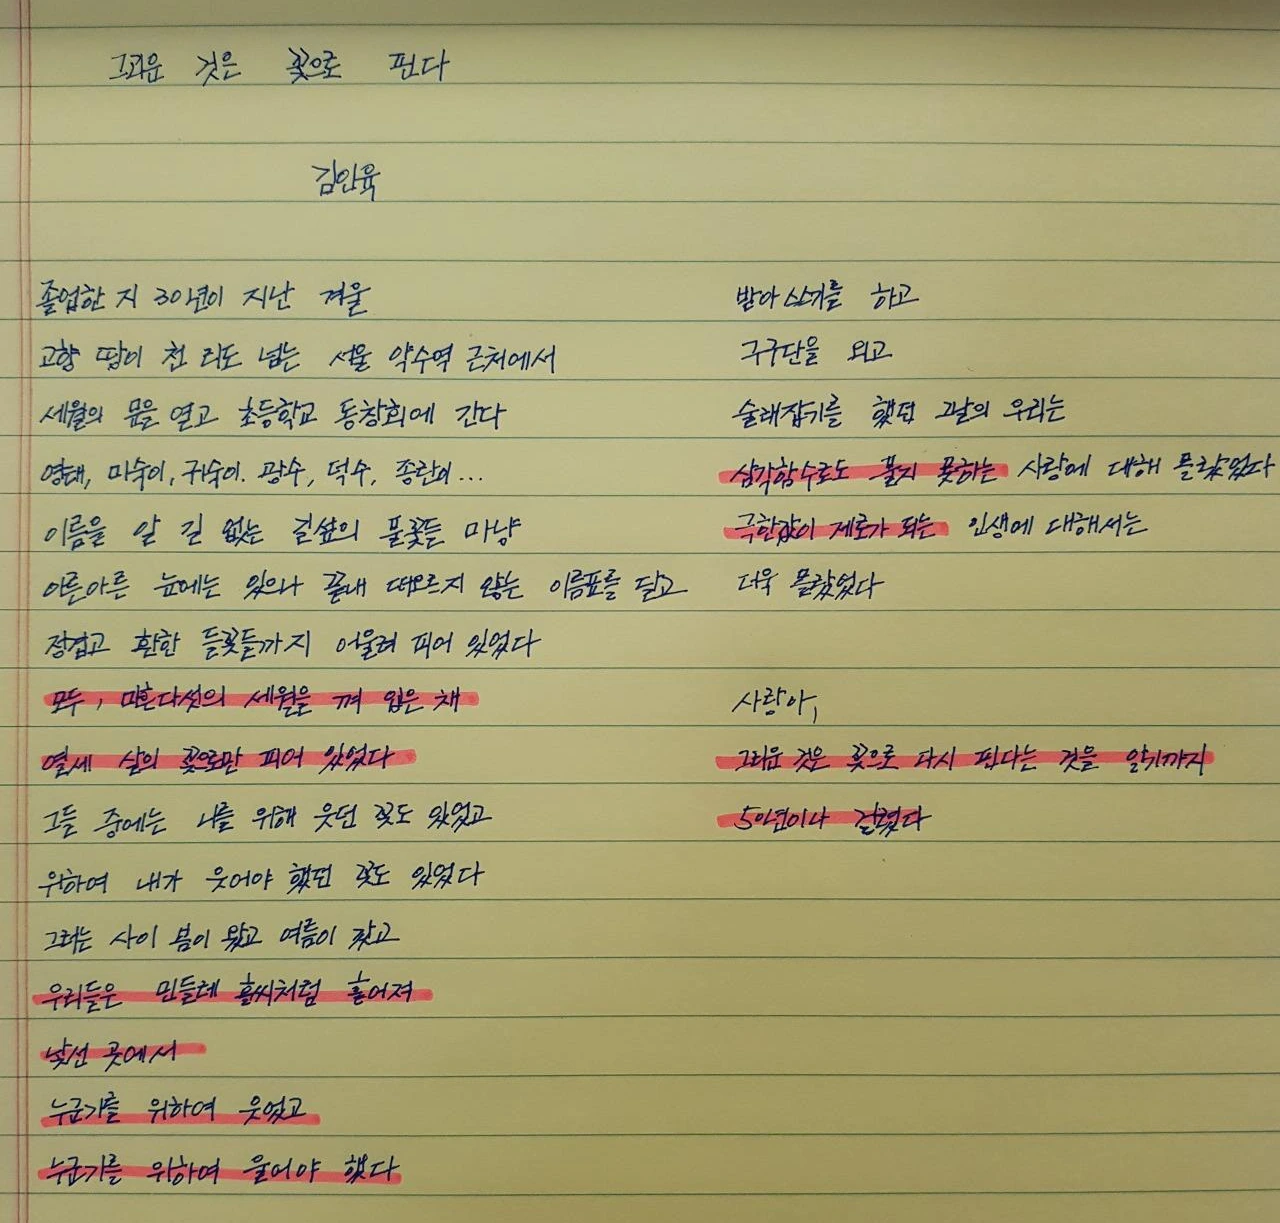 그리운 것은 꽃으로 핀다
김인육
졸업한 지 30년이 지난 겨울
고향 땅이 천 리도 넘는 서울 약수역 근처에서
세월의 문을 열고 초등학교 동창회에 간다
영태, 미숙이, 귀숙이. 광수, 덕수, 종란이...
이름을 알 길 없는 길섶의 풀꽃들 마냥
아른아른 눈에는 있으나 끝내 떠오르지 않는 이름표를 달고
정겹고 환한 들꽃들까지 어울려 피어 있었다
모두, 마흔다섯의 세월을 껴 입은 채
열세 살의 꽃으로만 피어 있었다
그들 중에는 나를 위해 웃던 꽃도 있었고
위하여 내가 웃어야 했던 꽃도 있었다
그러는 사이 봄이 왔고 여름이 갔고
우리들은 민들레 홀씨처럼 흩어져
낯선 곳에서
누군가를 위하여 웃었고
누군가를 위하여 울어야 했다
받아쓰기를 하고
구구단을 외고
술래잡기를 했던 그날의 우리는
삼각함수로도 풀지 못하는 사랑에 대해 몰랐었다
극한값이 제로가 되는 인생에 대해서는
더욱 몰랐었다
사랑아,
그리운 것은 꽃으로 다시 핀다는 것을 알기까지
50년이나 걸렸다